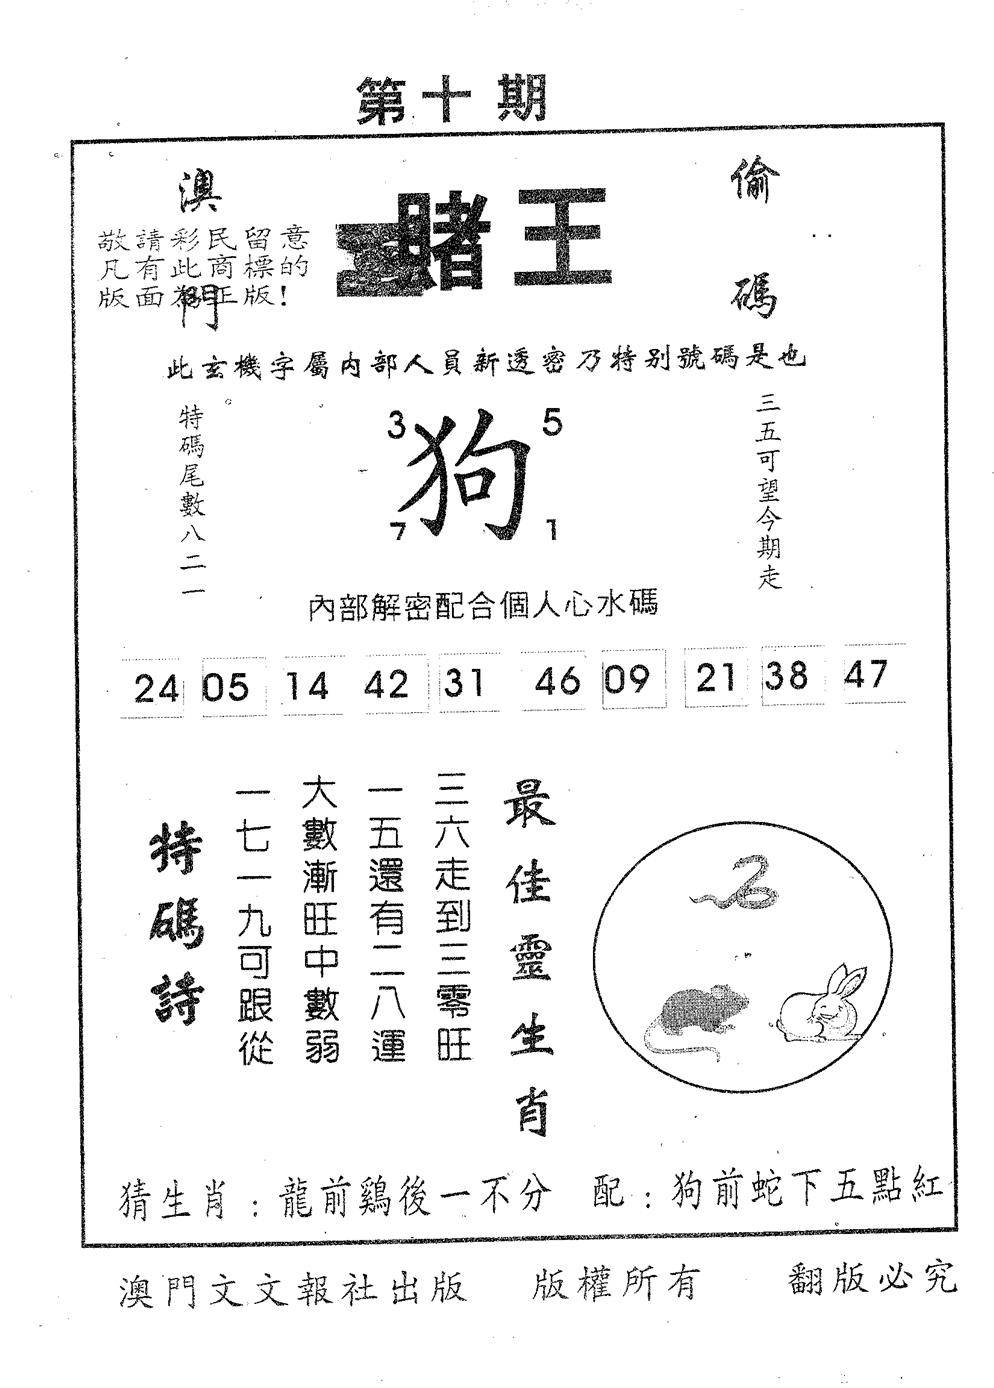 第十期
澳門
賭王
偷碼
敬請彩民留意
凡有此商標的
版面為正版!
此玄機字屬内部人員新透密乃特别號碼是也
特碼尾數八二一
3 5
狗
7 1
三五可望今期走
內部解密配合個人心水碼
24 05 14 42 31 46 09 21 38 47
最佳靈生肖
三六走到三零旺
一五還有二八運
大數漸旺中數弱
一七一九可跟從
特碼詩
猜生肖:龍前鷄後一不分 配:狗前蛇下五點紅
澳門文文報社出版 版權所有 翻版必究